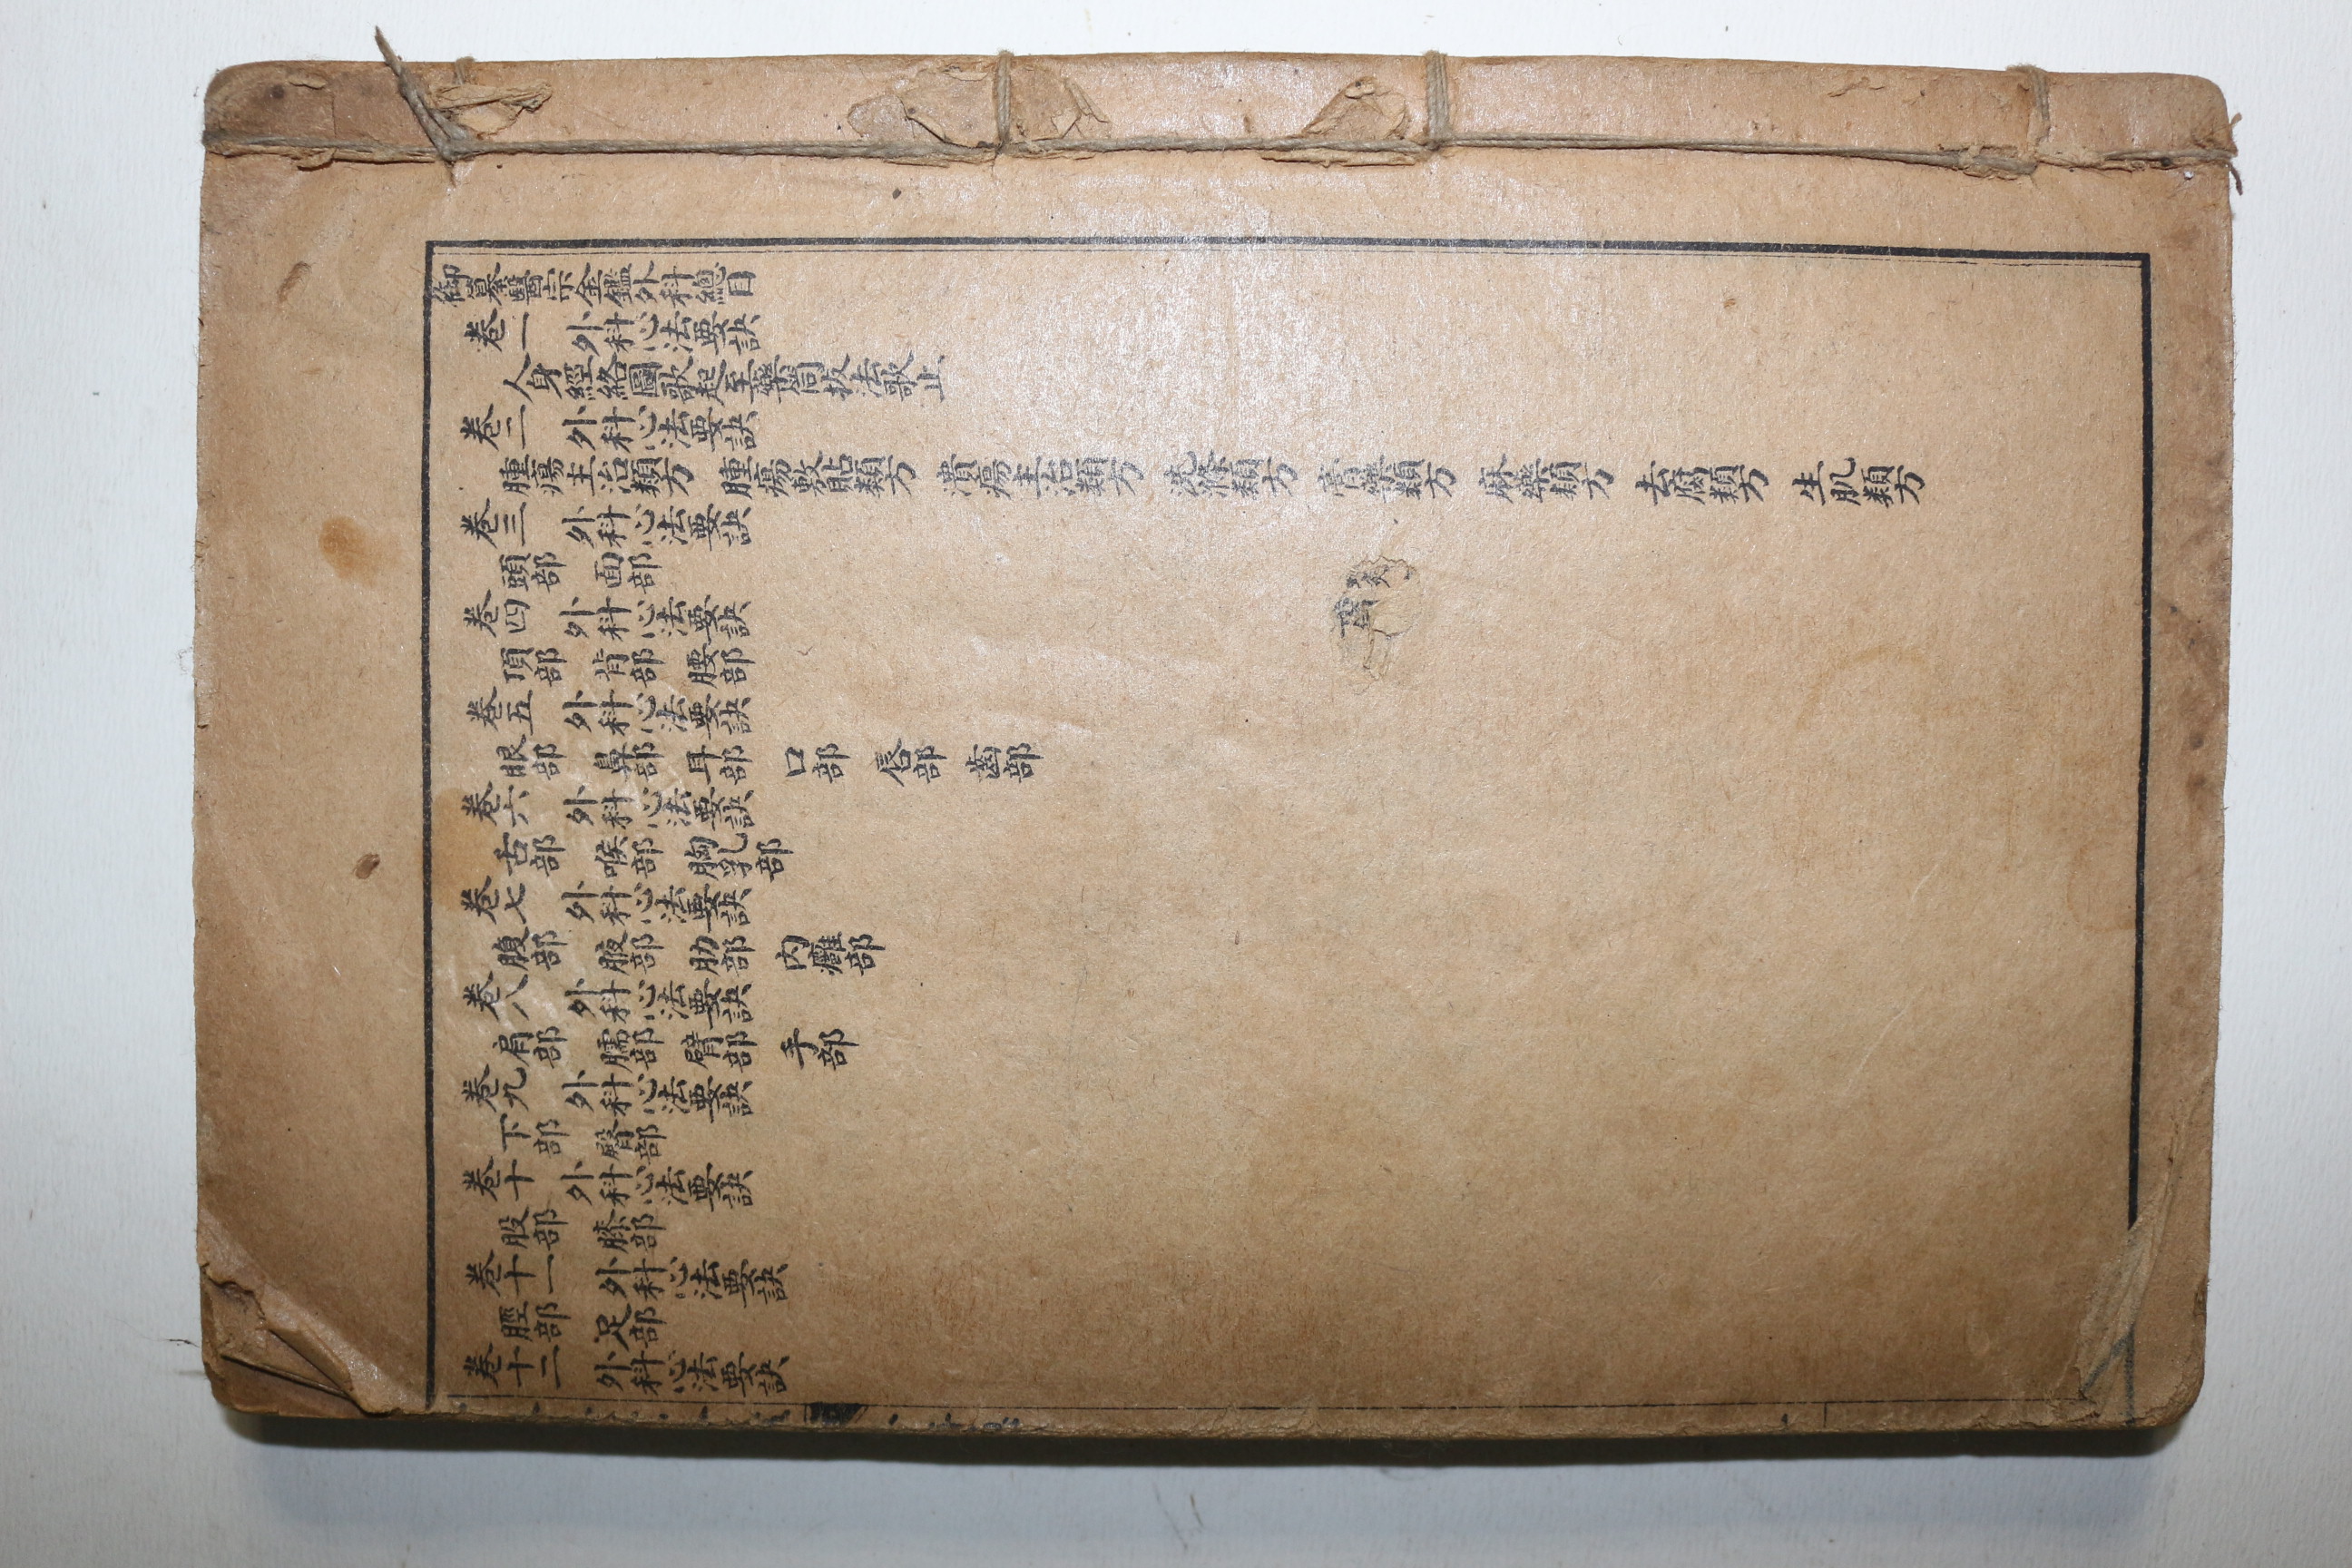 御纂醫宗金鑑外科總目
卷一 外科心法要訣
人身經絡圖歌起至藥筒拔法歌止
卷二 外科心法要訣
腫瘍主治類方 腫瘍敷貼類方 潰瘍主治類方 洗滌類方 膏藥類方 麻藥類方 去腐類方 生肌類方
卷三 外科心法要訣
頭部 面部
卷四 外科心法要訣
項部 背部 腰部
卷五 外科心法要訣
眼部 鼻部 耳部 口部 唇部 齒部
卷六 外科心法要訣
舌部 喉部 胸乳部
卷七 外科心法要訣
腹部 腋部 肋部 內癰部
卷八 外科心法要訣
肩部 臑部 臂部 手部
卷九 外科心法要訣
下部 臀部
卷十 外科心法要訣
股部 膝部
卷十一 外科心法要訣
脛部 足部
卷十二 外科心法要訣